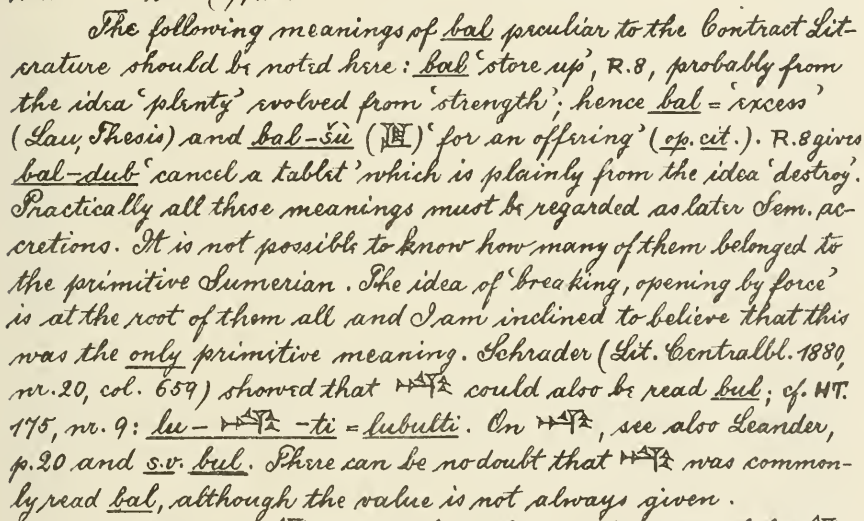 The following meanings of bal peculiar to the Contract Lit-
erature should be noted here: bal 'store up', R.8, probably from
the idea 'plenty' evolved from 'strength'; hence bal = 'excess'
(Lau, Thesis) and bal-šù ( ) 'for an offering' (op. cit.). R.8 gives
bal-dub 'cancel a tablet' which is plainly from the idea 'destroy'.
Practically all these meanings must be regarded as later Sem. ac-
cretions. It is not possible to know how many of them belonged to
the primitive Sumerian. The idea of 'breaking, opening by force'
is at the root of them all and I am inclined to believe that this
was the only primitive meaning. Schrader (Lit. Centralbl. 1880,
nr. 20, col. 659) showed that could also be read bul; cf. HT.
175, nr. 9: lu- -ti = lubulti. On , see also Leander,
p. 20 and s.v. bul. There can be no doubt that was common-
ly read bal, although the value is not always given.